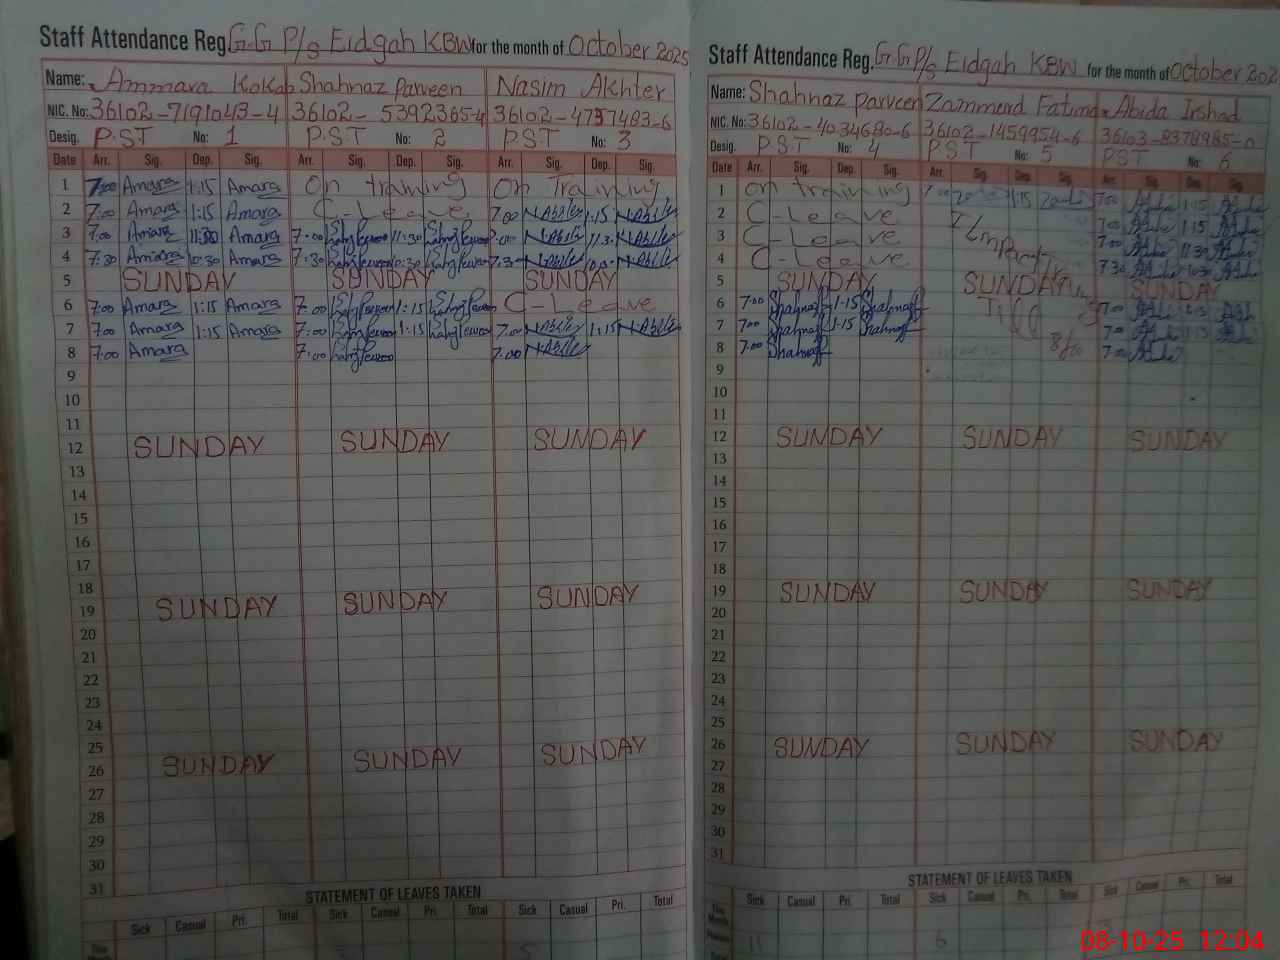 Staff Attendance Reg. G.G P/S Eidgah KBW for the month of October 2025
Name: Ammara Kokab Shahnaz Parveen Nasim Akhter
NIC. No: 36102-7191043-4 36102-5392365-4 36102-4757483-6
Desig. P.S.T No: 1 P.S.T No: 2 P.S.T No: 3
Date Arr. Sig. Dep. Sig. Arr. Sig. Dep. Sig. Arr. Sig. Dep. Sig.
1 7:00 Amara 1:15 Amara On training On Training
2 7:00 Amara 1:15 Amara C-Leave 7:00 1:15
3 7:00 Amara 11:30 Amara 7:00 11:30 11:30
4 7:30 Amara 10:30 Amara 7:30 10:30 7:30
5 SUNDAY SUNDAY SUNDAY
6 7:00 Amara 1:15 Amara 7:00 1:15 C-Leave
7 7:00 Amara 1:15 Amara 7:00 1:15 7:00 1:15
8 7:00 Amara 7:00 7:00
9
10
11
12 SUNDAY SUNDAY SUNDAY
13
14
15
16
17
18
19 SUNDAY SUNDAY SUNDAY
20
21
22
23
24
25
26 SUNDAY SUNDAY SUNDAY
27
28
29
30
31
STATEMENT OF LEAVES TAKEN
Sick Casual Pri. Total Sick Casual Pri. Total Sick Casual Pri. Total
This
Staff Attendance Reg. G.G P/S Eidgah KBW for the month of October 202
Name: Shahnaz Parveen Zammurd Fatima Abida Irshad
NIC. No: 36102-4034680-6 36102-1459954-6 36103-8378985-0
Desig. P.S.T No: 4 P.S.T No: 5 PST No: 6
Date Arr. Sig. Dep. Sig. Arr. Sig. Dep. Sig. Arr. Sig. Dep. Sig.
1 On training 7:00 1:15 7:00 1:15
2 C-Leave 7:00 1:15
3 C-Leave 7:00 11:30
4 C-Leave 7:30 10:30
5 SUNDAY SUNDAY SUNDAY
6 7:00 Shahnaz 1:15 Shahnaz Till 7:00 1:15
7 7:00 Shahnaz 1:15 Shahnaz 7:00 1:15
8 7:00 Shahnaz 7:00
9
10
11
12 SUNDAY SUNDAY SUNDAY
13
14
15
16
17
18
19 SUNDAY SUNDAY SUNDAY
20
21
22
23
24
25
26 SUNDAY SUNDAY SUNDAY
27
28
29
30
31
STATEMENT OF LEAVES TAKEN
Sick Casual Pri. Total Sick Casual Pri. Total Sick Casual Pri. Total
This
Month
08-10-25 12:04